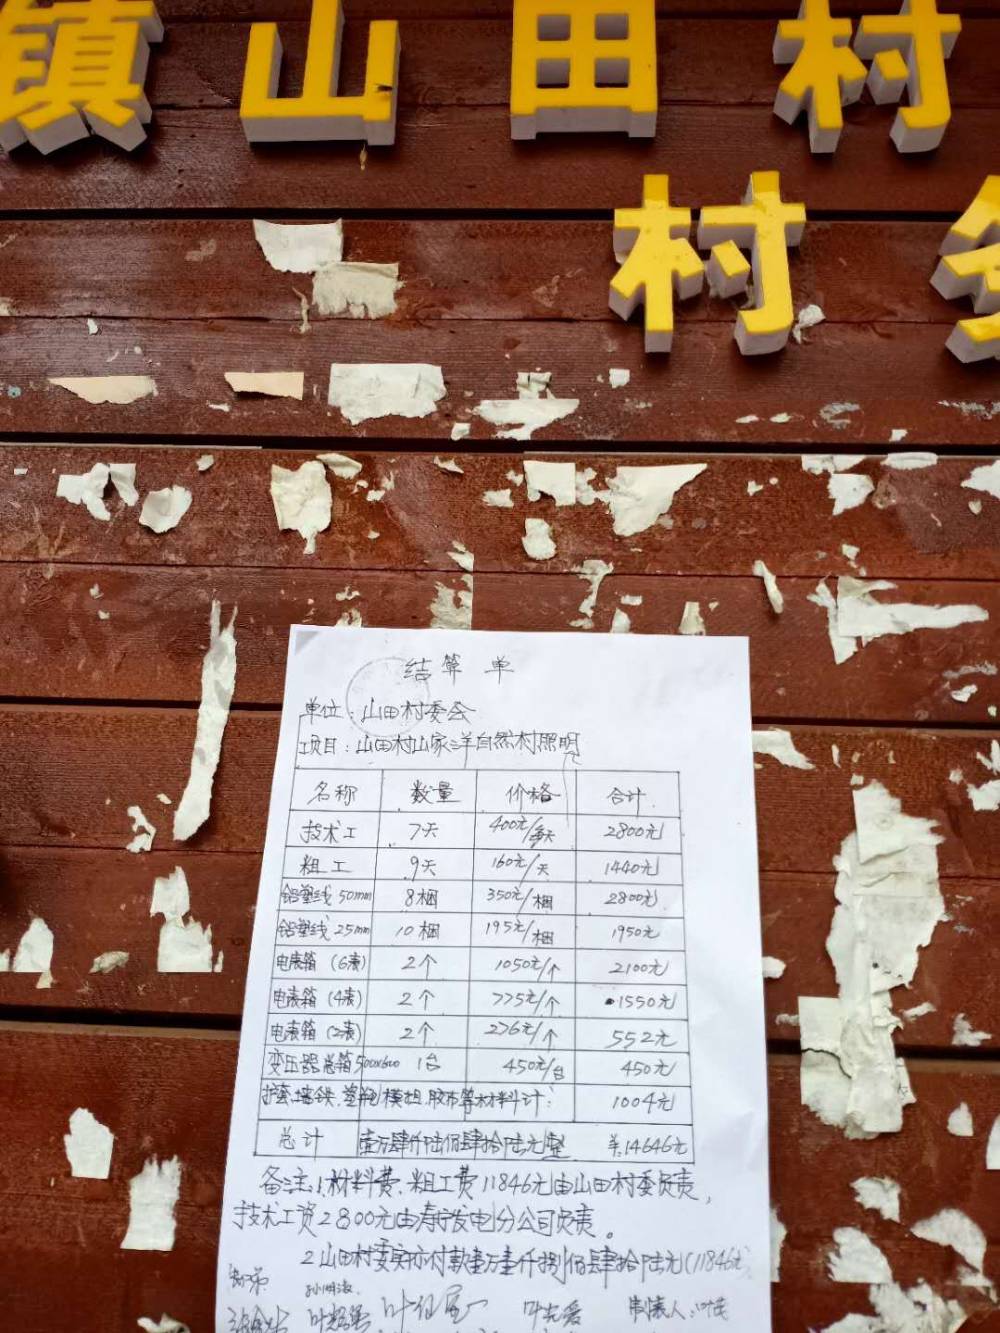 镇山田村
村务
结算单
单位：山田村委会
项目：山田村山家洋自然村照明
名称 数量 价格 合计
技术工 7天 400元/每天 2800元
粗工 9天 160元/天 1440元
铝塑线 50mm 8梱 350元/梱 2800元
铝塑线 25mm 10梱 195元/梱 1950元
电表箱（6表） 2个 1050元/个 2100元
电表箱（4表） 2个 775元/个 1550元
电表箱（2表） 2个 276元/个 552元
变压器总箱500x600 1台 450元/台 450元
胶布等材料计： 1004元
总计 壹万肆仟陆佰肆拾陆元整 ¥:14646元
备注：1、材料费、粗工费11846元由山田村委负责，
技术工资2800元由寿宁发电分公司负责。
2 山田村委实亦付款壹万壹仟捌佰肆拾陆元（11846元
制表人：